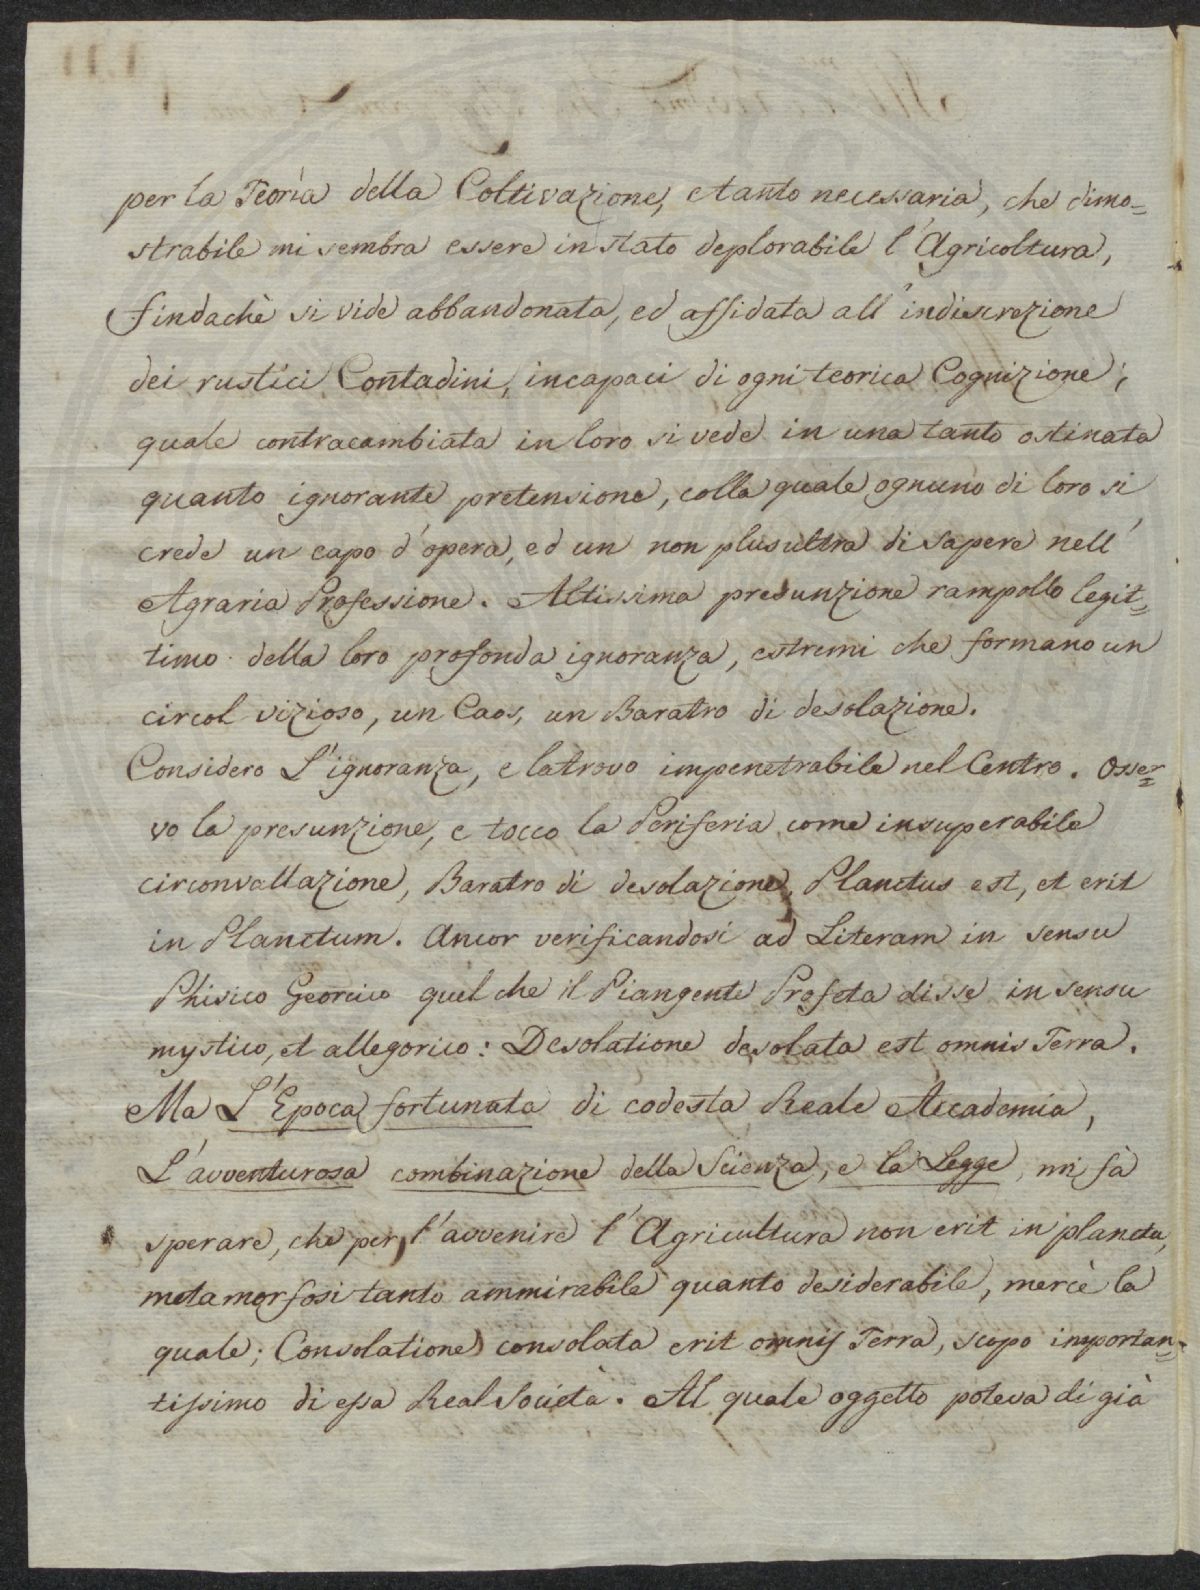 per la Teorìa della Coltivazione, e tanto necessaria, che dimo=
strabile mi sembra essere in stato deplorabile l'Agricoltura,
findachè si vide abbandonata, ed affidata all'indiscrezione
dei rustici Contadini, incapaci di ogni teorica Cognizione;
quale contracambiata in loro si vede in una tanto ostinata
quanto ignorante pretensione, colla quale ognuno di loro si
crede un capo d'opera, ed un non plusultra di sapere nell'
Agraria Professione. Altissima presunzione rampollo legit=
timo della loro profonda ignoranza, estremi che formano un
circol vizioso, un Caos, un Baratro di desolazione.
Considero L'ignoranza, e la trovo impenetrabile nel Centro. Osser=
vo la presunzione, e tocco la Periferia come insuperabile
circonvallazione, Baratro di desolazione, Planctus est, et erit
in Planctum. Ancor verificandosi ad Literam in sensu
Phisico Georcico quel che il Piangente Profeta disse in sensu
mystico, et allegorico: Desolatione desolata est omnis Terra.
Ma L'Epoca fortunata di codesta Reale Accademia,
L'avventurosa combinazione della Scienza, e la Legge, mi fà
sperare, che per l'avvenire l'Agricultura non erit in planctu,
metamorfosi tanto ammirabile quanto desiderabile, mercè la
quale; Consolatione consolata erit omnis Terra, scopo importan=
tissimo di essa Real Società. Al quale oggetto poteva di già